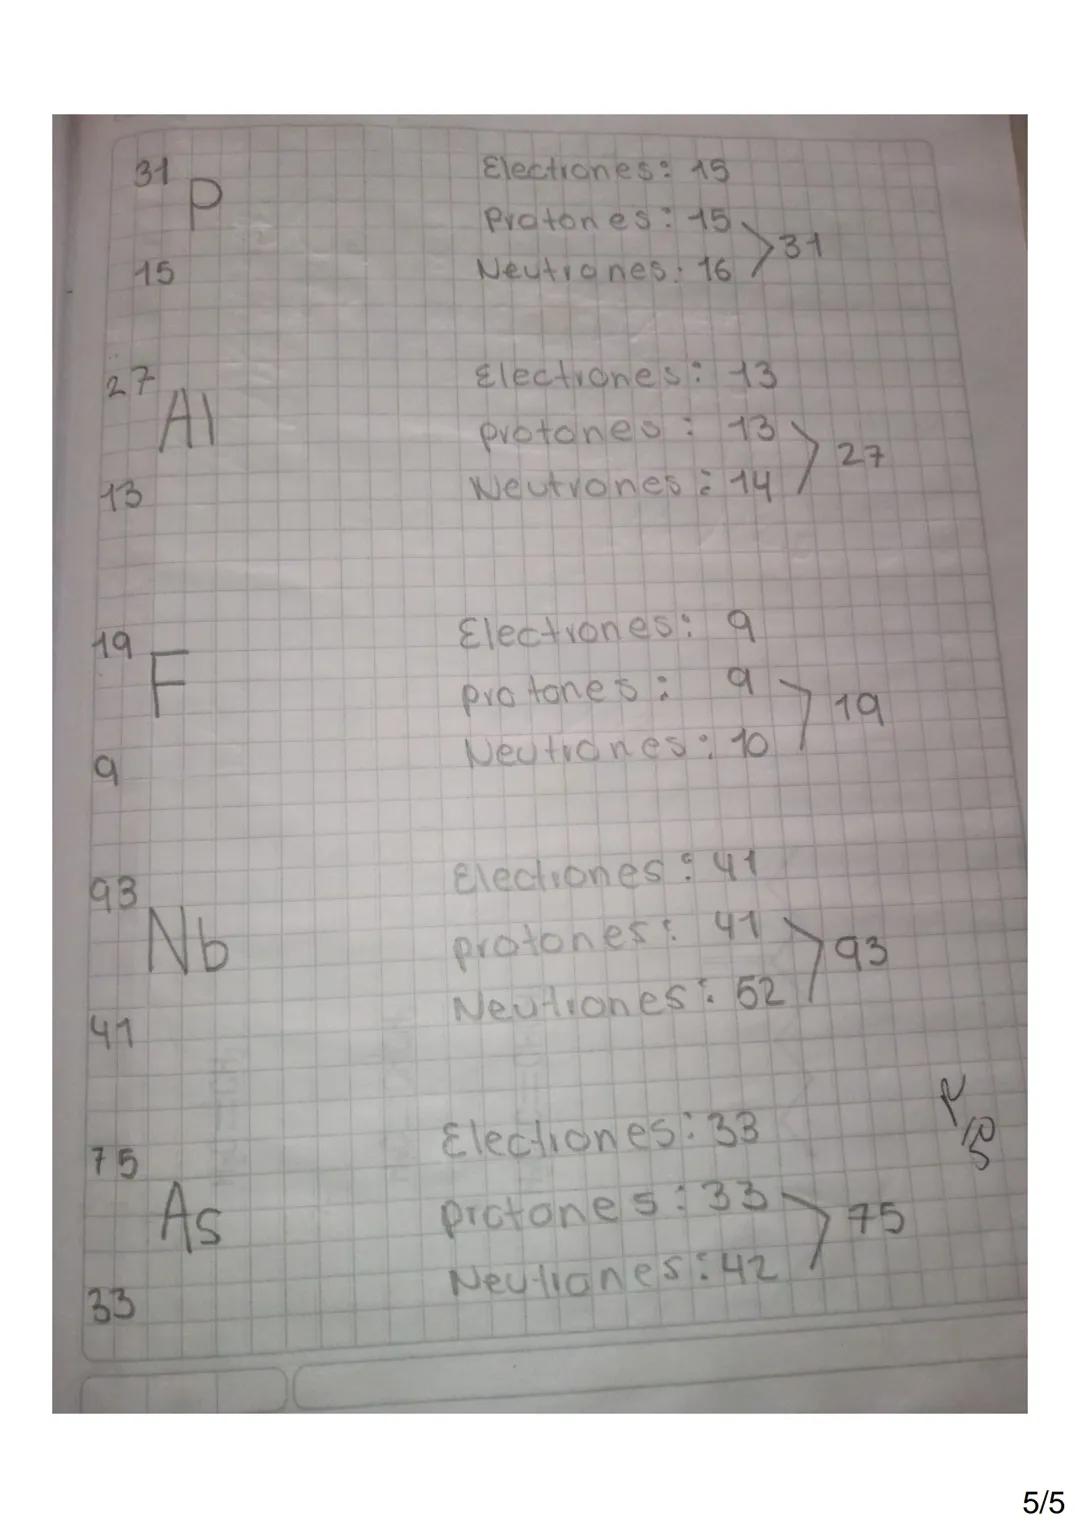 31
P
15
Electrones: 15
Protones: 15
Neutrones: 16
31
27
Al
13
Electrones: 13
protones: 13
Neutrones: 14
27
19
F
9
Electrones: 9
protones: 9
Neutrones: 10
19
93
Nb
41
Electrones: 41
protones: 41
Neutrones: 52
93
75
As
33
Electrones: 33
protones: 33
Neutrones: 42
75
5/5